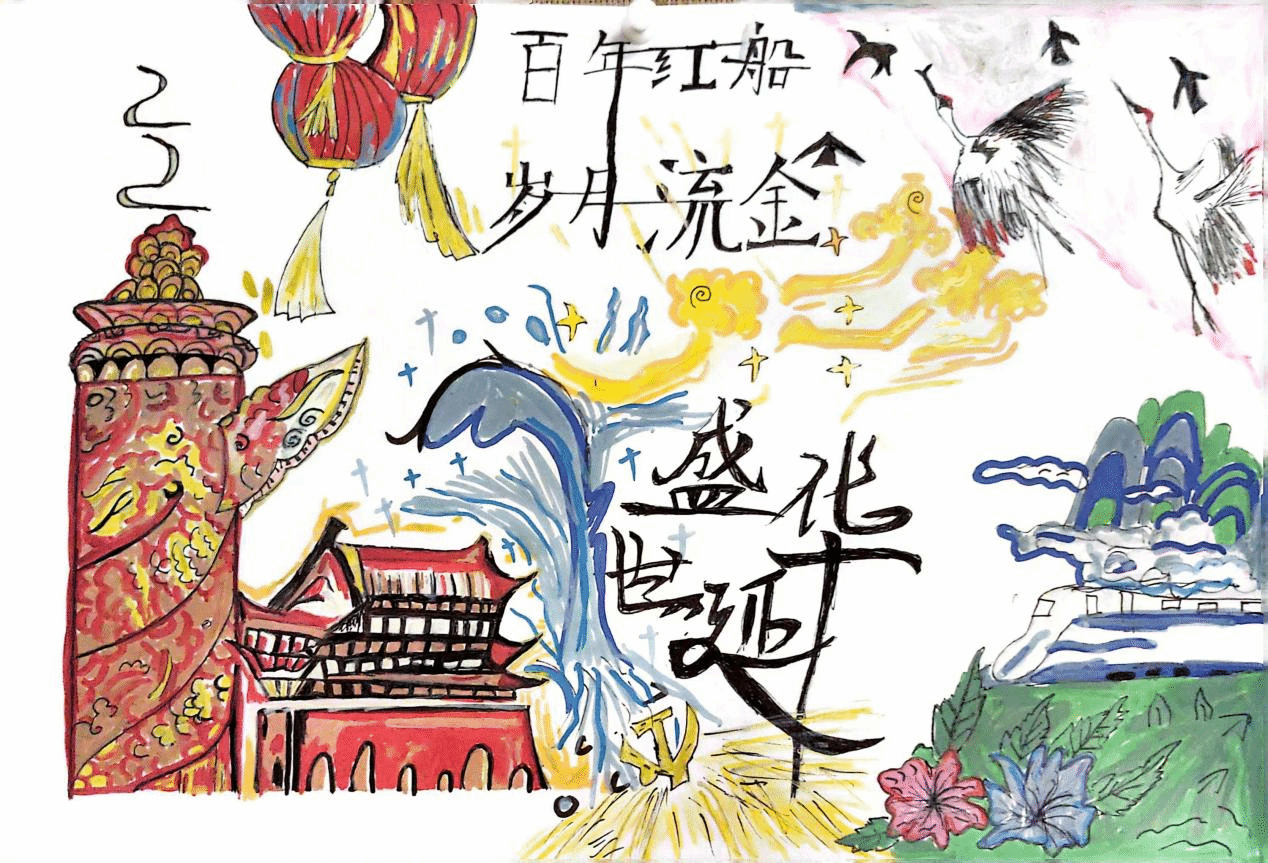 22
百年红船
岁月流金
盛世华延